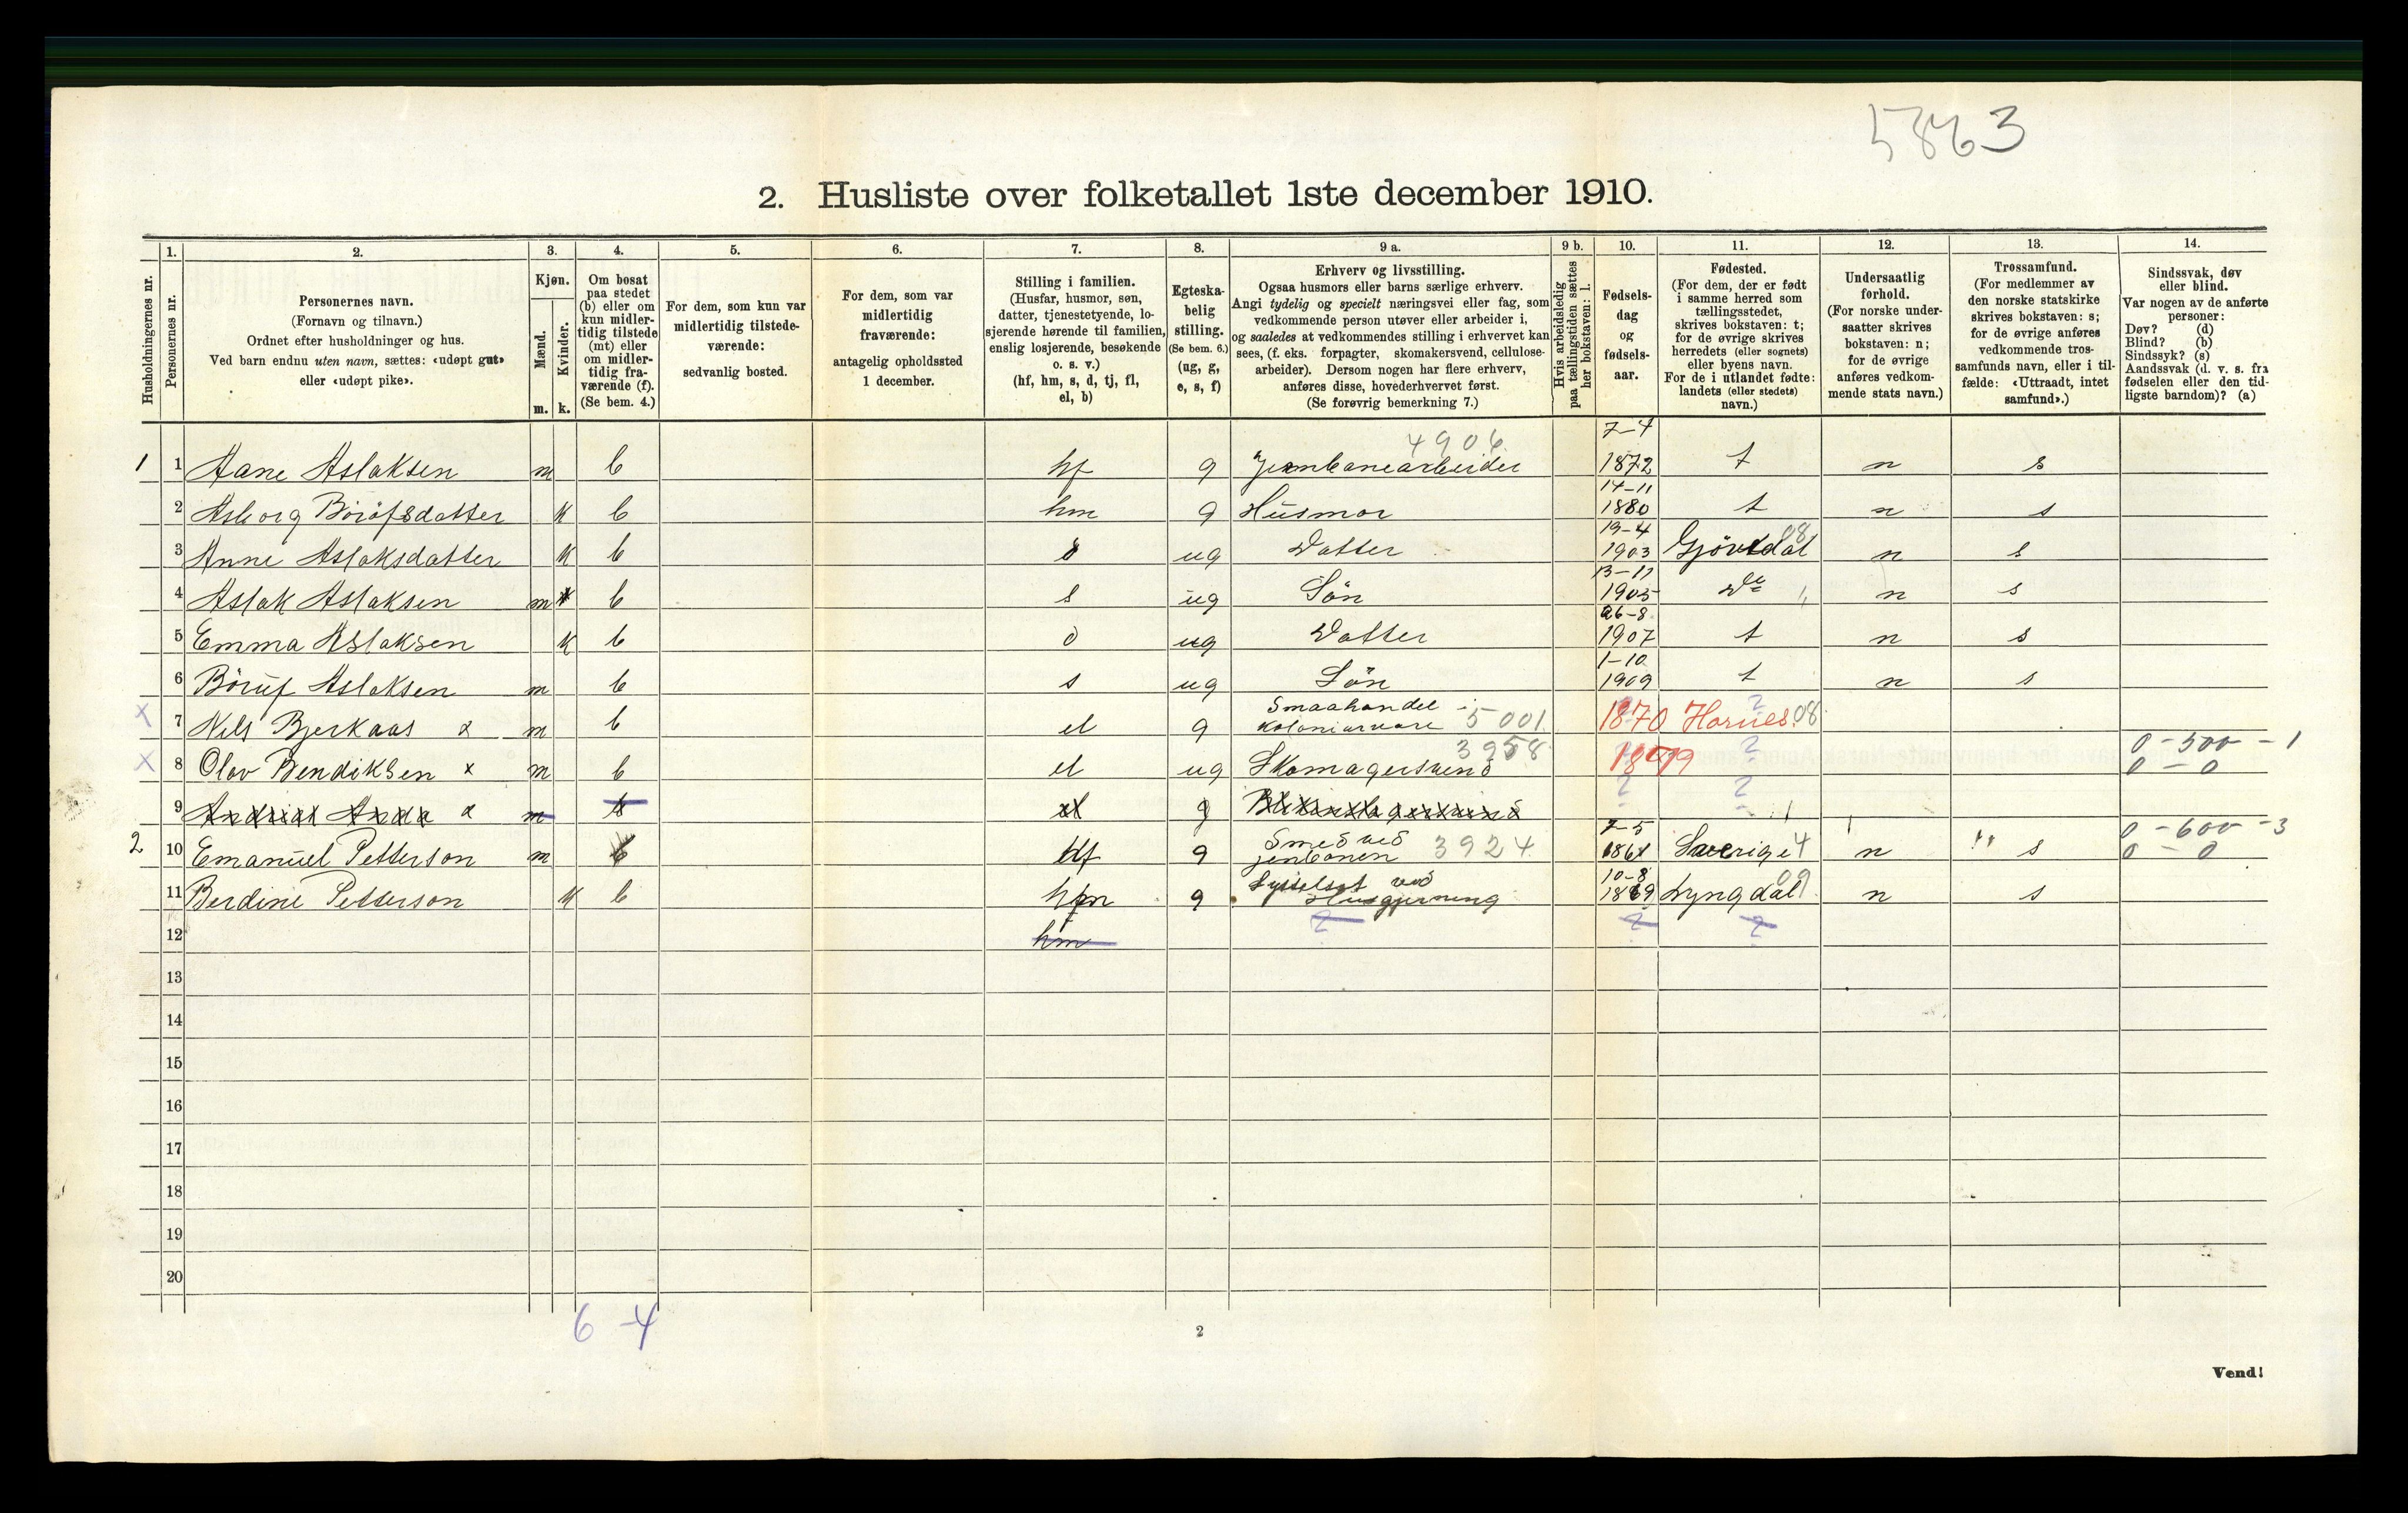 5863
2. Husliste over folketallet 1ste december 1910.
Husholdningernes nr.
1. Personernes nr.
2. Personernes navn.
(Fornavn og tilnavn.)
Ordnet efter husholdninger og hus.
Ved barn endnu uten navn, sættes: «udøpt gut»
eller «udøpt pike».
3. Kjøn.
Mænd. Kvinder.
m. k.
4. Om bosat
paa stedet
(b) eller om
kun midler-
tidig tilstede
(mt) eller
om midler-
tidig fra-
værende (f).
(Se bem. 4.)
5. For dem, som kun var
midlertidig tilstede-
værende:
sedvanlig bosted.
6. For dem, som var
midlertidig
fraværende:
antagelig opholdssted
1 december.
7. Stilling i familien.
(Husfar, husmor, søn,
datter, tjenestetyende, lo-
sjerende hørende til familien,
enslig losjerende, besøkende
o. s. v.)
(hf, hm, s, d, tj, fl,
el, b)
8. Egteska-
belig
stilling.
(Se bem. 6.)
(ug, g,
e, s, f)
9 a. Erhverv og livsstilling.
Ogsaa husmors eller barns særlige erhverv.
Angi tydelig og specielt næringsvei eller fag, som
vedkommende person utøver eller arbeider i,
og saaledes at vedkommendes stilling i erhvervet kan
sees, (f. eks. forpagter, skomakersvend, cellulose-
arbeider). Dersom nogen har flere erhverv,
anføres disse, hovederhvervet først.
(Se forøvrig bemerkning 7.)
9 b. Hvis arbeidsledig
paa tællingstiden sættes
her bokstaven: l.
10. Fødsels-
dag
og
fødsels-
aar.
11. Fødested.
(For dem, der er født
i samme herred som
tællingsstedet,
skrives bokstaven: t;
for de øvrige skrives
herredets (eller sognets)
eller byens navn.
For de i utlandet fødte:
landets (eller stedets)
navn.)
12. Undersaatlig
forhold.
(For norske under-
saatter skrives
bokstaven: n;
for de øvrige
anføres vedkom-
mende stats navn.)
13. Trossamfund.
(For medlemmer av
den norske statskirke
skrives bokstaven: s;
for de øvrige anføres
vedkommende tros-
samfunds navn, eller i til-
fælde: «Uttraadt, intet
samfund».)
14. Sindssvak, døv
eller blind.
Var nogen av de anførte
personer:
Døv? (d)
Blind? (b)
Sindssyk? (s)
Aandssvak (d. v. s. fra
fødselen eller den tid-
ligste barndom)? (a)
4906 7-4
1 1 Aane Aslaksen m b hf g Jernbanearbeider 1872 t n s
14-11
2 Asborg Börufsdatter k b hm g Husmor 1880 t n s
19-4 08
3 Anne Aslaksdatter k b d ug Datter 1903 Gjövdal n s
13-11
4 Aslak Aslaksen m b s ug Sön 1905 Do n s
26-8
5 Emma Aslaksen k b d ug Datter 1907 t n s
1-10
6 Böruf Aslaksen m b s ug Sön 1909 t n s
Smaahandel i ?
x 7 Nils Bjerkaas x m b el g Kolonialvare 5001 1870 Hornes 08
3958 ? 0-500-1
x 8 Olav Bendiksen x m b el ug Skomagersvend 1879 0-0
? ?
9 x m b el g
Smed ved 7-5 0-600-3
2 10 Emanuel Petterson m b hf g jenbanen 3924 1861 Sverige 4 n " s 0-0
Sysselsat ved 10-8 09
11 Berdine Petterson k b hm g Husgjerning 1869 Lyngdal n s
12 hm ? ? ?
13
14
15
16
17
18
19
20
6-4
2
Vend!